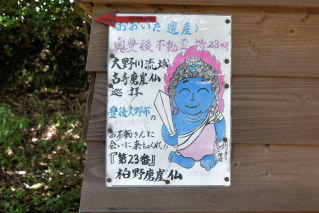 おおいた遺産
奥豊後不動霊場23ヶ所
大野川流域
古寺磨崖仏
巡拝
豊後大野市の
お不動さんに
会いに来ちょくれ!
『第23番』
柏野磨崖仏